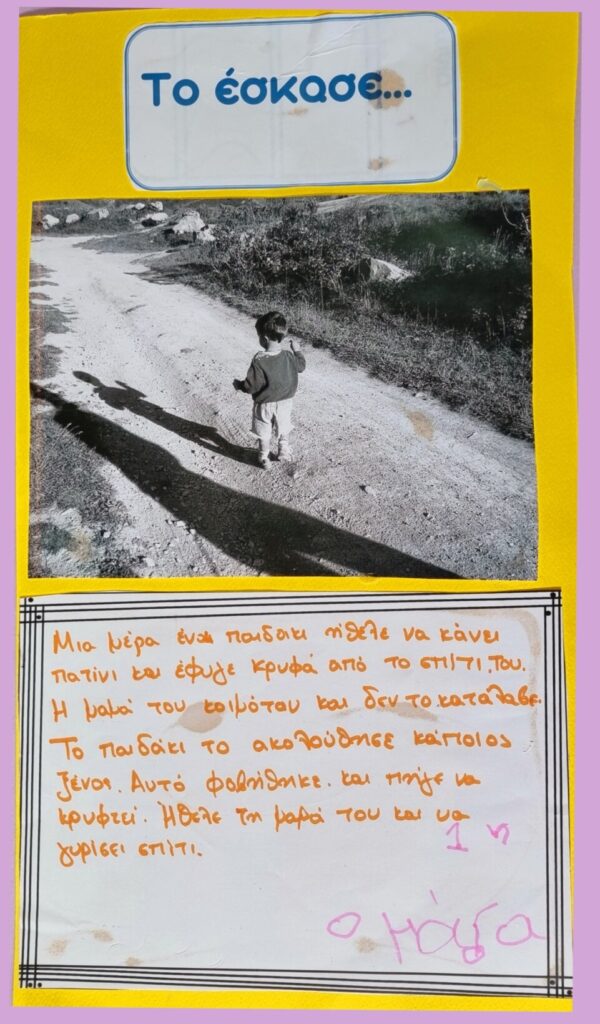 Το έσκασε...
Μια μέρα ένα παιδάκι ήθελε να κάνει
πατίνι και έφυγε κρυφά από το σπίτι του.
Η μαμά του κοιμόταν και δεν το κατάλαβε.
Το παιδάκι το ακολούθησε κάποιος
ξένος. Αυτό φοβήθηκε και πήγε να
κρυφτεί. Ήθελε τη μαμά του και να
γυρίσει σπίτι.